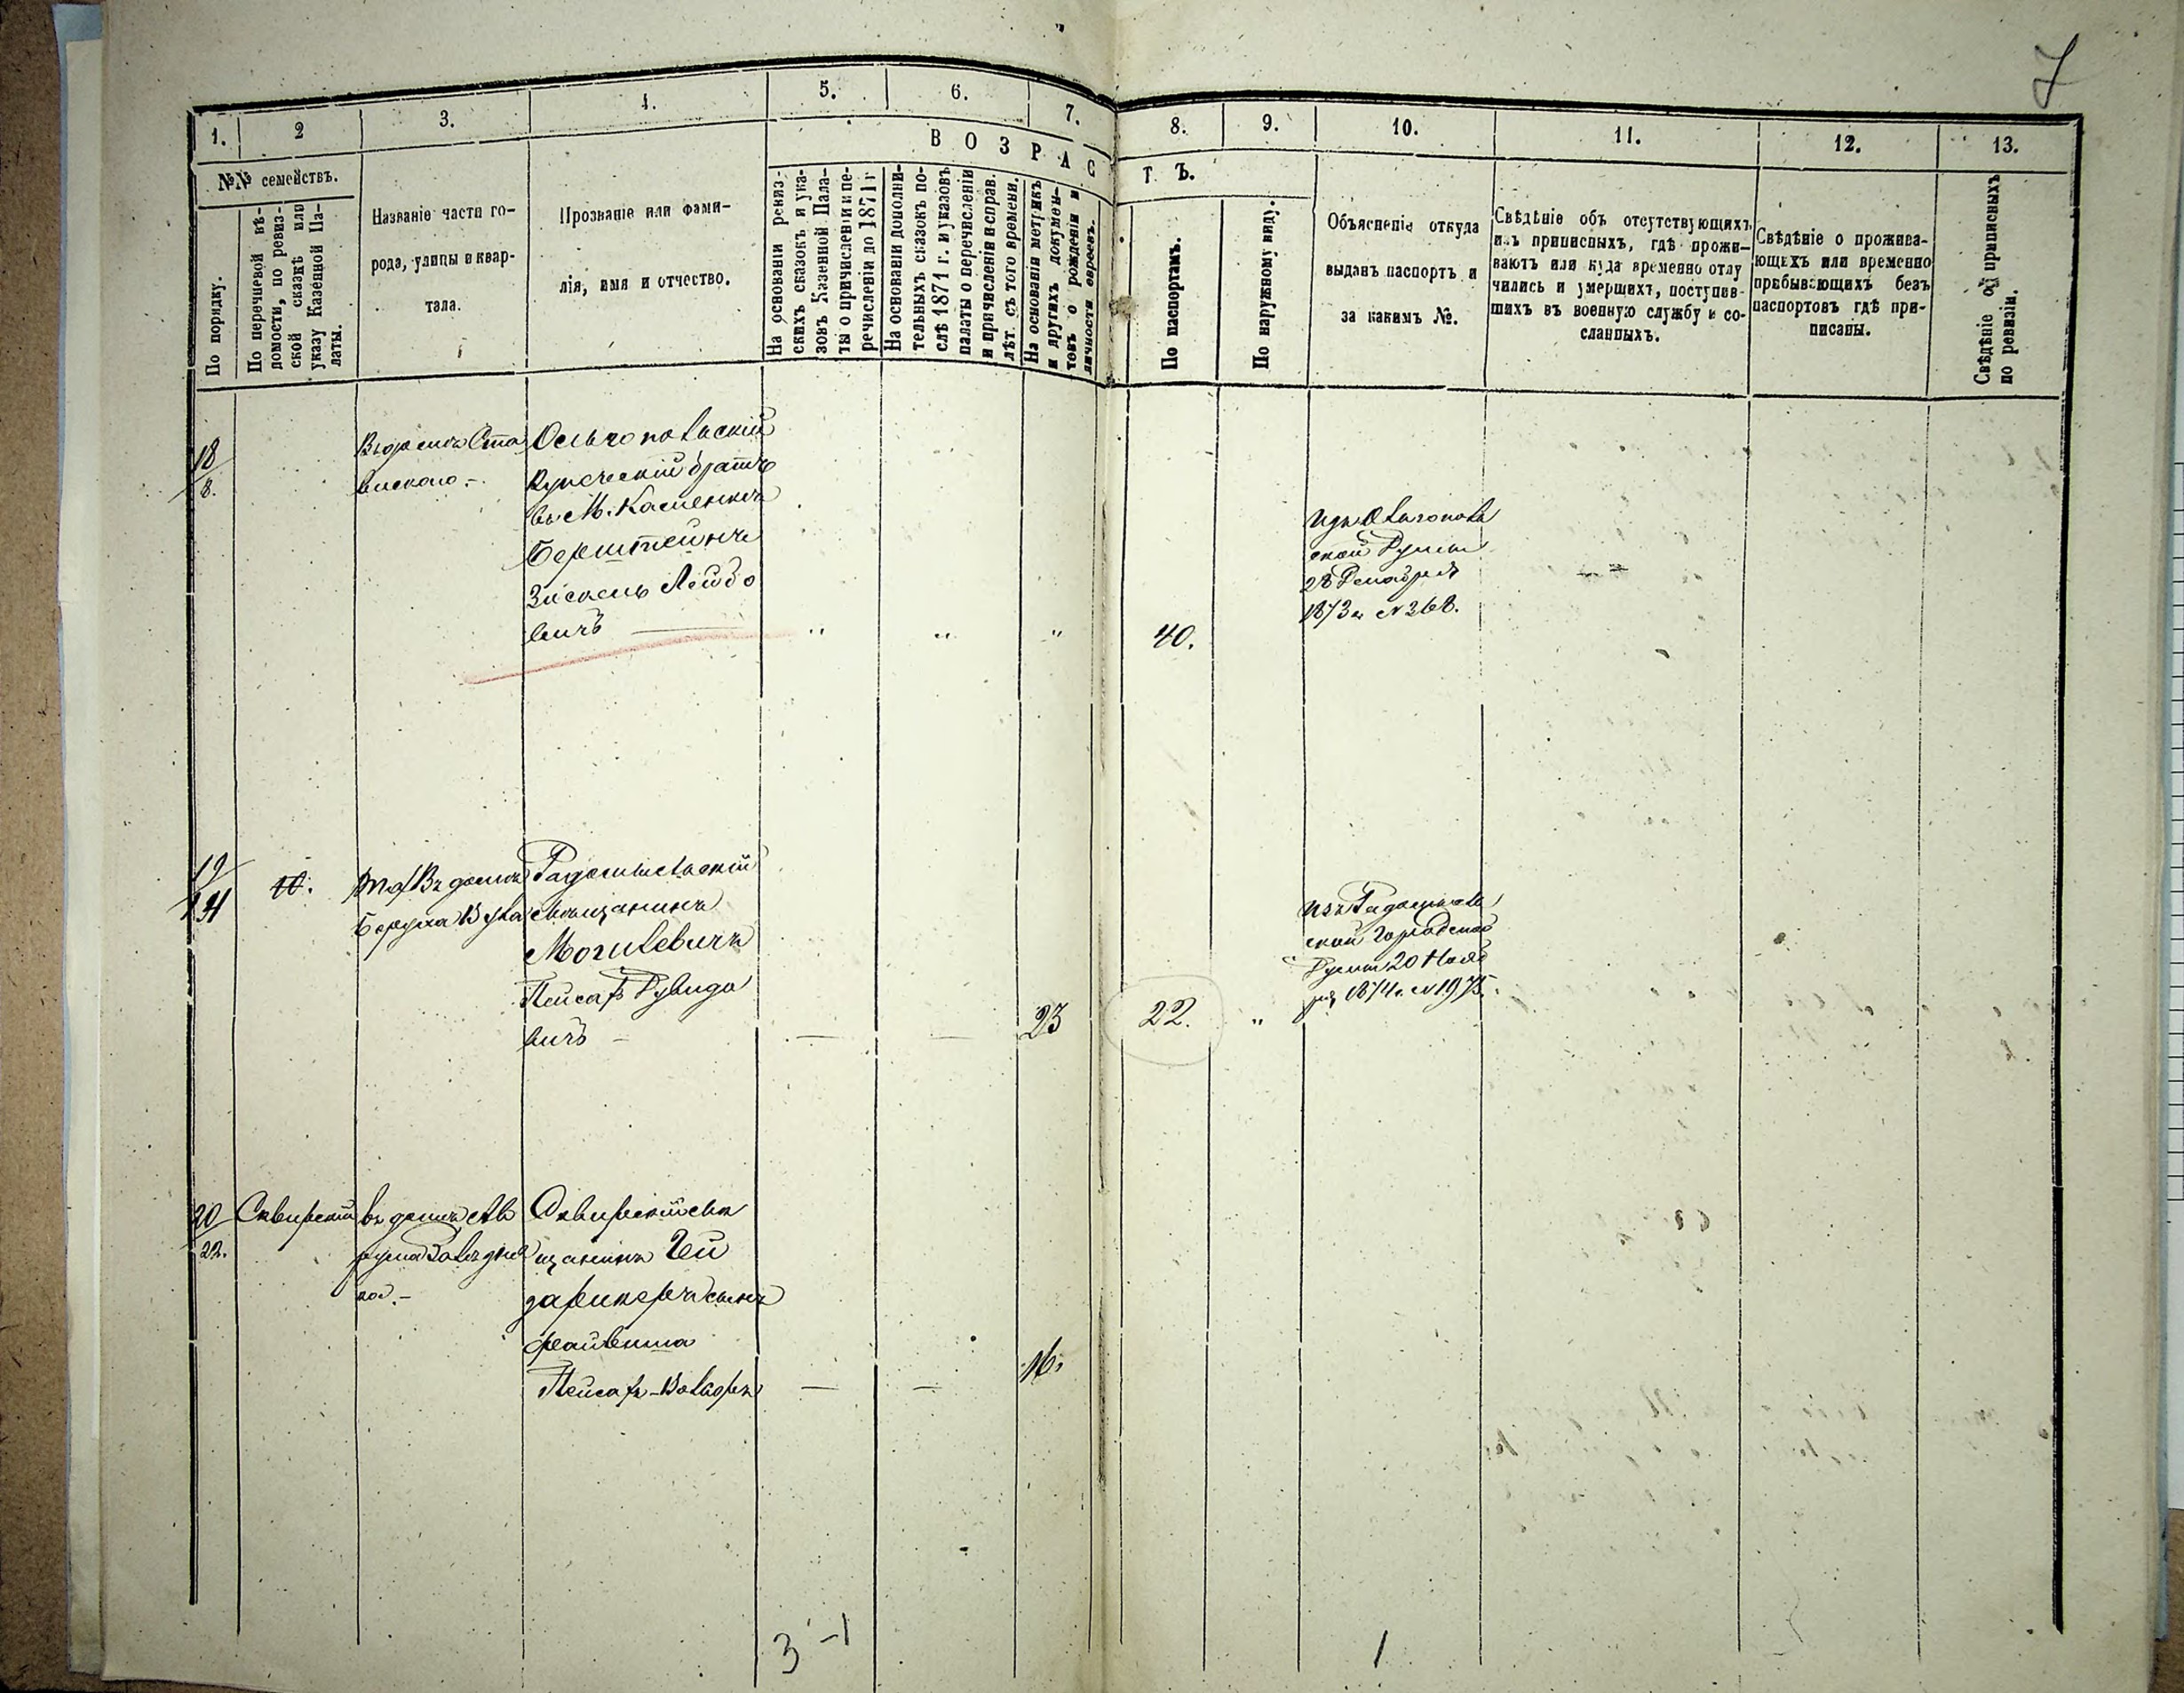 7
1. 2 3. 4. 5. 6. 7. 8. 9. 10. 11. 12. 13.
№№ семействъ.
По порядку.
По перечневой вѣ-
домости, по ревиз-
ской сказкѣ или
указу Казенной Па-
латы.
Названіе части го-
рода, улицы и квар-
тала.
Прозваніе или фами-
лія, имя и отчество.
ВОЗРАС
ТЪ.
На основаніи ревиз-
скихъ сказокъ и ука-
зовъ Казенной Пала-
ты о причисленіи и пе-
речисленіи до 1871 г
На основаніи дополни-
тельныхъ сказокъ по-
слѣ 1871 г. и указовъ
палаты о перечисленіи
и причисленіи и справ.
лѣт. съ того времени.
На основаніи метрикъ
и другихъ докумен-
товъ о рожденіи и
личности евреевъ.
По паспортамъ.
По наружному виду.
Объясненіе откуда
выданъ паспортъ и
за какимъ №.
Свѣдѣніе объ отсутствующихъ
изъ приписныхъ, гдѣ прожи-
ваютъ или куда временно отлу
чились и умершихъ, поступив-
шихъ въ военную службу и со-
сланныхъ.
Свѣдѣніе о прожива-
ющихъ или временно
пребывающихъ безъ
паспортовъ гдѣ при-
писаны.
Свѣдѣніе о приписныхъ
по ревизіи.
18
8.
Ста
вискаго.-
Купеческій братъ
въ М. Каменкѣ
Берштейнъ
Зисъ Лейбо
вичъ
40.
изъ
ской Думы
28 Декабря
1873 г. № 368.
19
Въ домѣ
Боруха
Радомысльскій
мѣщанинъ
Могилевичъ
Пейсахъ Дувидо
вичъ
23
22.
изъ Радомысль
ской Городской
Думы 20 Нояб
ря 1874 г. № 1975.
20
22.
Сквирскій
въ домѣ
Сквирскій мѣ
щанинъ Гей
сынъ
Файвиша
Пейсахъ-Волько
16.
3 -1
1